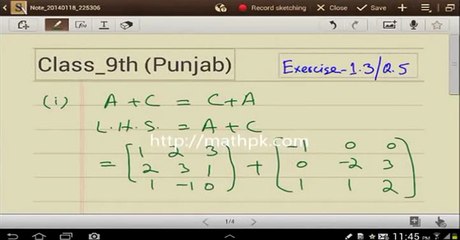 Note_20140118_225306
Record sketching
Cancel
Save
Class_9th (Punjab)
Exercise-1.3/Q.5
(i) A + C = C + A
L.H.S. = A + C
http://mathpk.com
= [1 2 3 + [-1 0 0
2 3 1 0 -2 3
1 -1 0] 1 1 2]
1/4
11:45 PM